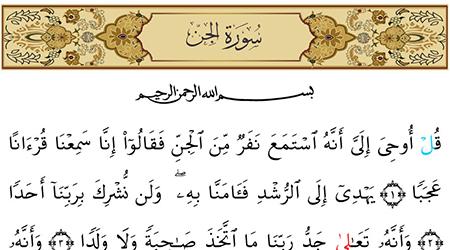 سُورَةُ الجِنّ
بسم الله الرحمن الرحيم
قُلْ أُوحِىَ إِلَىَّ أَنَّهُ ٱسْتَمَعَ نَفَرٌ مِّنَ ٱلْجِنِّ فَقَالُوٓا۟ إِنَّا سَمِعْنَا قُرْءَانًا
عَجَبًا ﴿١﴾ يَهْدِىٓ إِلَى ٱلرُّشْدِ فَـَٔامَنَّا بِهِۦ ۖ وَلَن نُّشْرِكَ بِرَبِّنَآ أَحَدًا
﴿٢﴾ وَأَنَّهُۥ تَعَـٰلَىٰ جَدُّ رَبِّنَا مَا ٱتَّخَذَ صَـٰحِبَةً وَلَا وَلَدًا ﴿٣﴾ وَأَنَّهُۥ